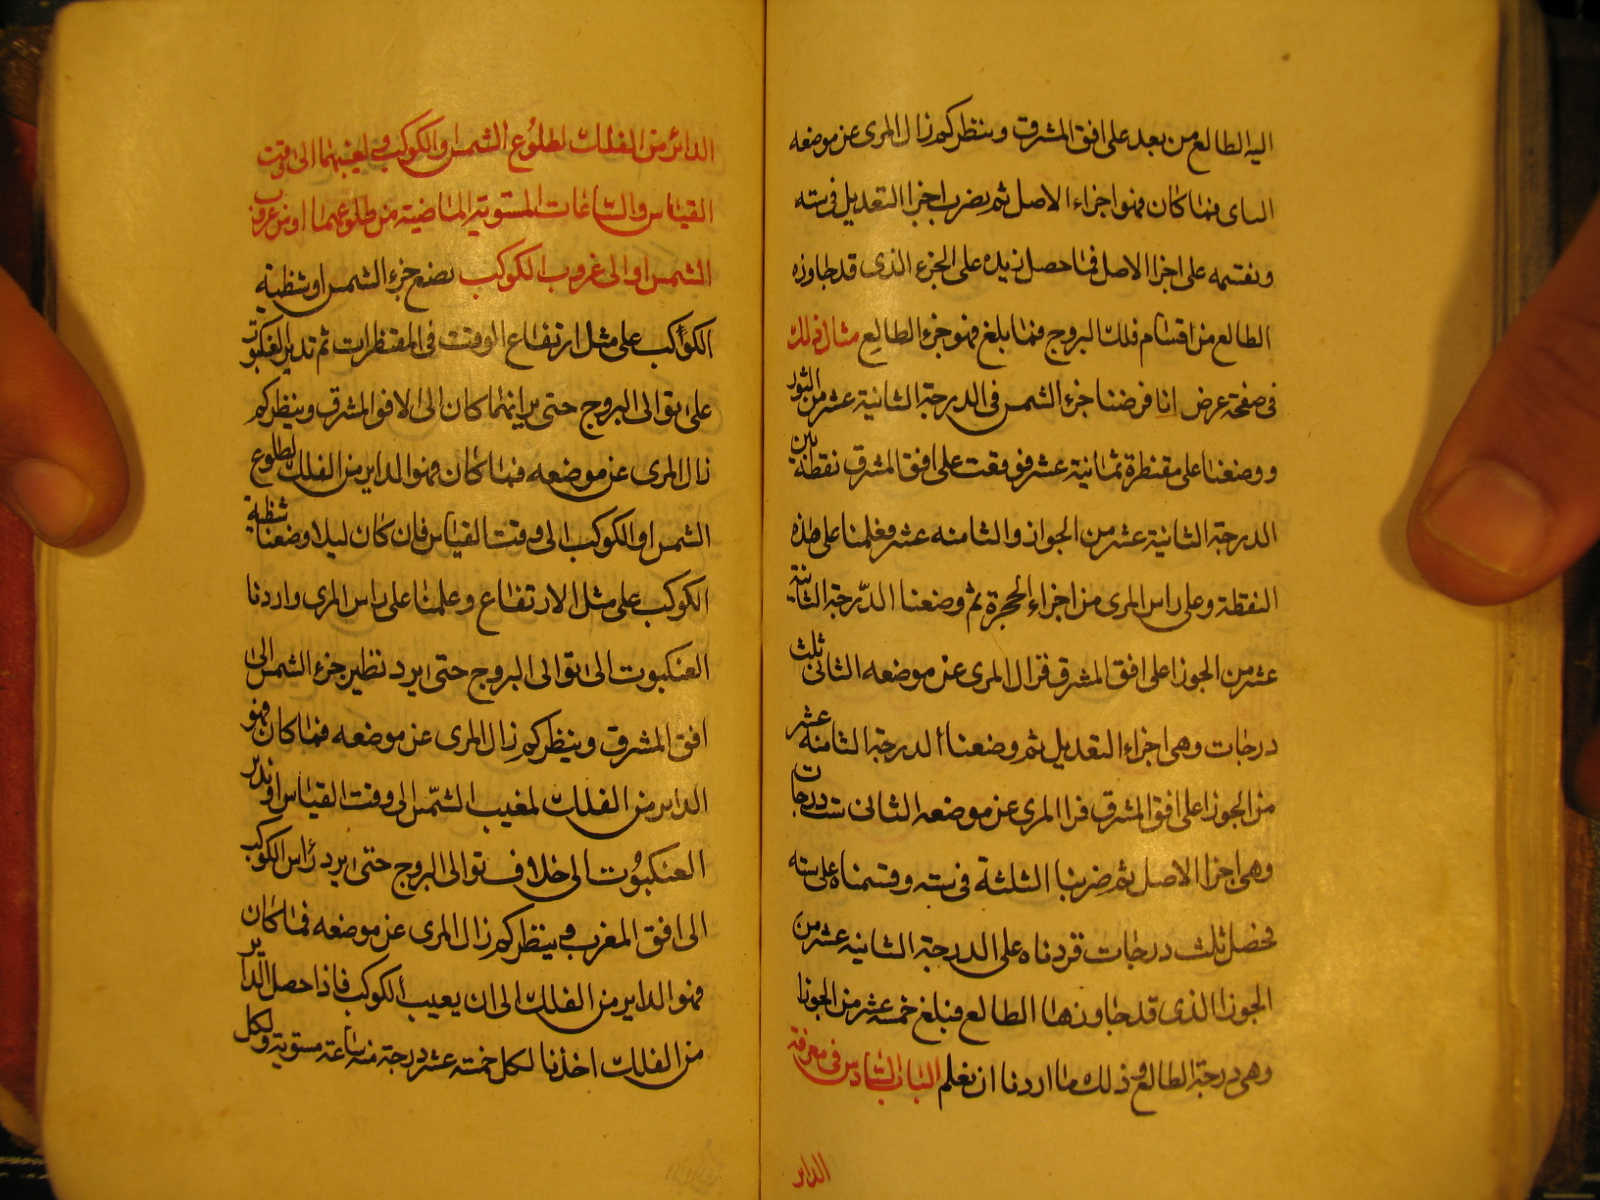 اليه الطالع من بعد على افق المشرق وينظر كم زال المرى عن موضعه
الثانى فما كان فهو اجزاء الاصل ثم يضرب اجزا التعديل فى سته
ونقسمه على اجزا الاصل فما حصل نزيده على الجزء الذى قد جاوزه
الطالع من اقسام فلك البروج فما بلغ فهو جزء الطالع مثال ذلك
فى صفحة عرض انا فرضنا جزء الشمس فى الدرجة الثانية عشر من الثور
ووضعنا على مقنطرة ثمانية عشر فوقعت على افق المشرق نقطة بين
الدرجة الثانية عشر من الجوزا والثامنه عشر فعلمنا على هذه
النقطة وعلى راس المرى من اجزاء الحجرة ثم وضعنا الدرجة الثانية
عشر من الجوزا على افق المشرق فزال المرى عن موضعه الثانى ثلث
درجات وهى اجزاء التعديل ثم وضعنا الدرجة الثامنة عشر
من الجوزا على افق المشرق فزا المرى عن موضعه الثانى ست درجات
وهى اجزا الاصل ثم ضربنا الثلثة فى سته وقسمناه على سته
فحصل ثلث درجات فزدناه على الدرجة الثانية عشر من
الجوزا الذى قد جاوزها الطالع فبلغ خمسه عشر من الجوزا
وهى درجة الطالع وذلك ما اردنا ان نعلم الباب السادس فى معرفة
الداير
الدائر من الفلك لطلوع الشمس والكوكب فى لغيبهما الى وقت
القياس والساعات المستوية الماضية من طلوعهما او من غروب
الشمس او الى غروب الكوكب نضع جزء الشمس او شظية
الكوكب على مثل ارتفاع الوقت فى المقنظرات ثم تدير العنكبوت
على توالى البروج حتى يرد انهما كان الى الافق المشرق وينظر كم
زال المرى عن موضعه فما كان فهو الداير من الفلك لطلوع
الشمس او الكوكب الى وقت القياس فان كان ليلا وضعنا شظية
الكوكب على مثل الارتفاع وعلمنا على راس المرى واردنا
العنكبوت الى توالى البروج حتى يرد نظير جزء الشمس الى
افق المشرق وينظر كم زال المرى عن موضعه فما كان فهو
الداير من الفلك لمغيب الشمس الى وقت القياس او ندير
العنكبوت الى خلاف توالى البروج حتى يرد راس الكوكب
الى افق المغرب وينظر كم زال المرى عن موضعه فما كان
فهو الداير من الفلك الى ان يغيب الكوكب فاذا حصل الداير
من الفلك اخذنا لكل خمسة عشر درجة منه ساعة مستوية ولكل